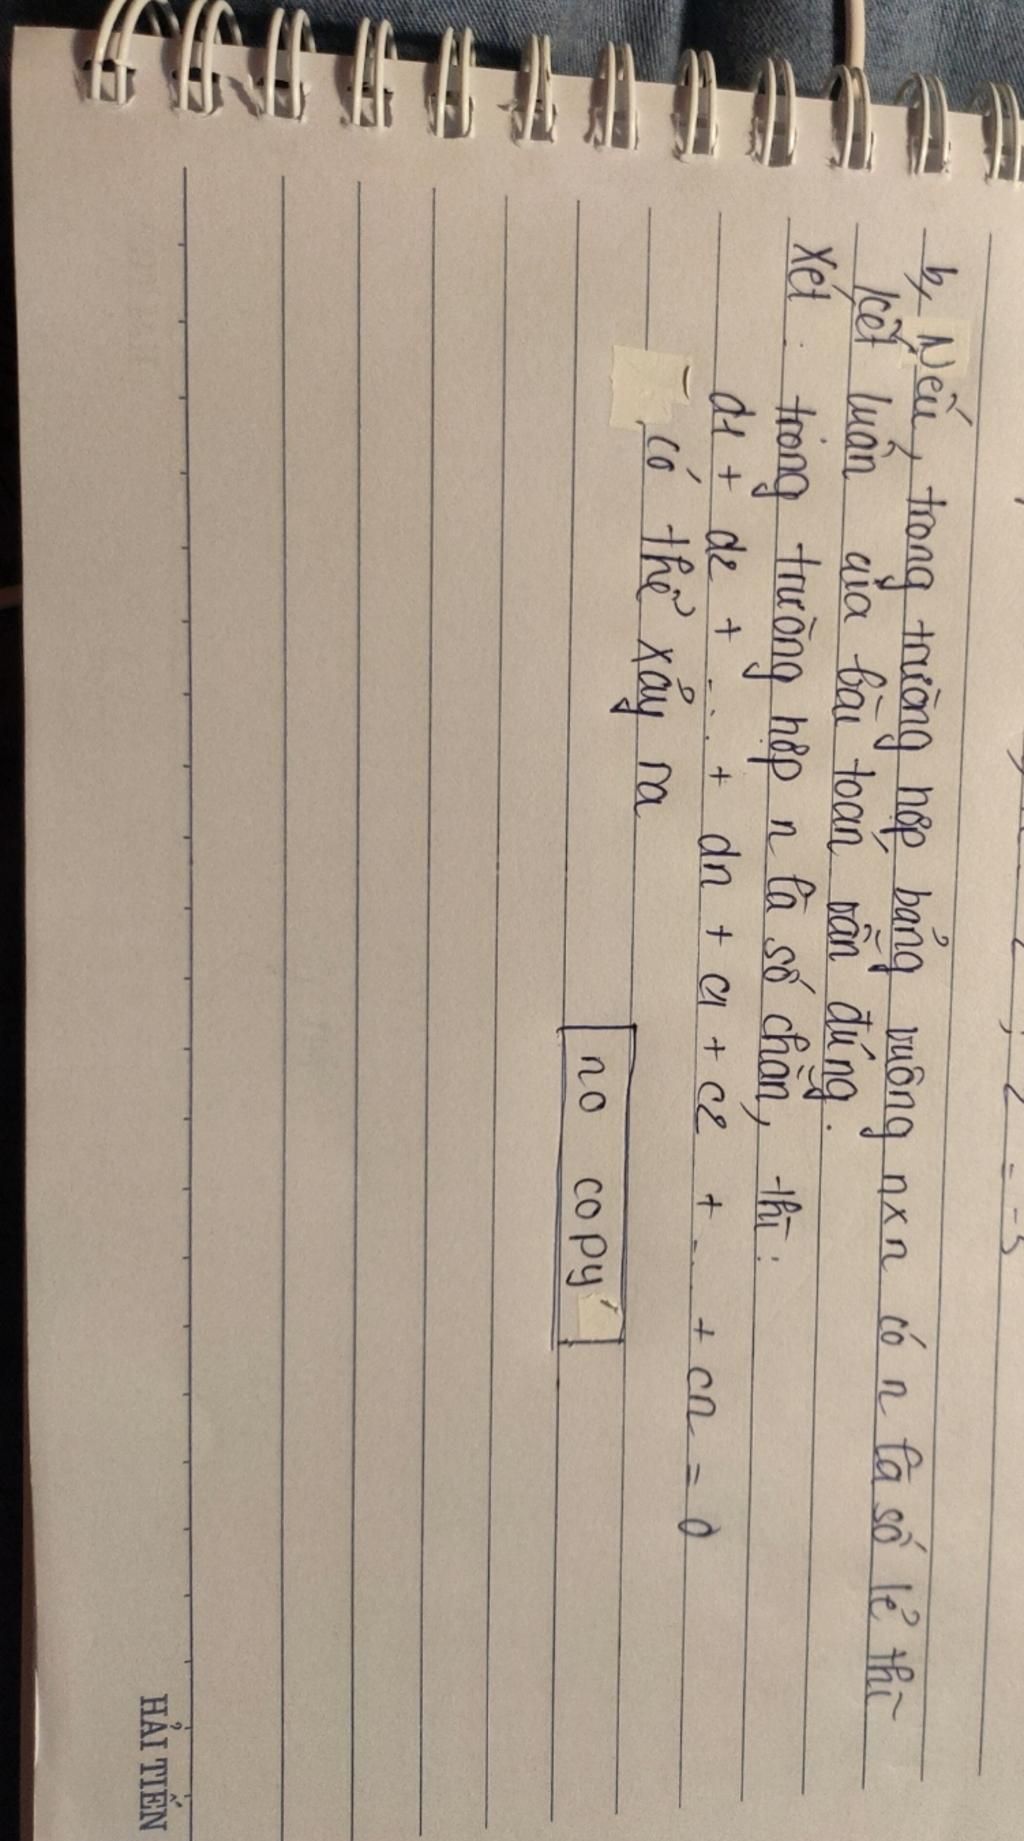 b, Nếu, trong trường hợp bảng vuông nxn có n là số lẻ thì
kết luận của bài toán vẫn đúng.
Xét: trong trường hợp n là số chẵn, thì:
d1 + d2 + ... + dn + c1 + c2 + ... + cn = 0
có thể xảy ra
no copy
HẢI TIẾN